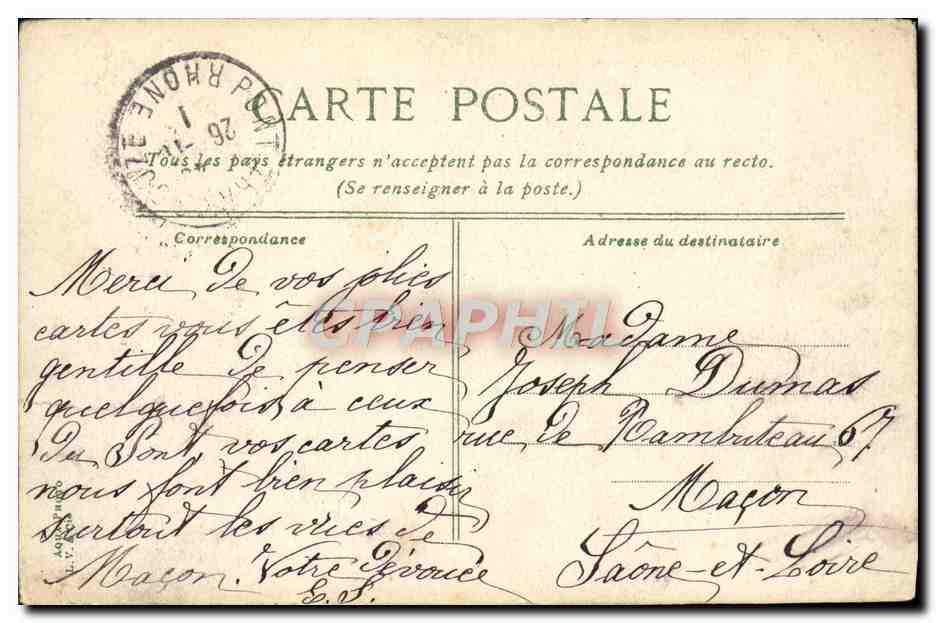 CARTE POSTALE
Tous les pays étrangers n'acceptent pas la correspondance au recto.
(Se renseigner à la poste.)
RHONE
26
Correspondance
Merci de vos jolies
cartes vous êtes bien
gentille de penser
quelquefois, à ceux
du Pont, vos cartes
nous font bien plaisir
surtout les vues de
Maçon. Votre dévouée
E. S.
Adresse du destinataire
Madame
Joseph Dumas
rue de Rambuteau 67
Maçon
Saône-et-Loire
CPAPHIL
AQUA PHOTO
L. V.